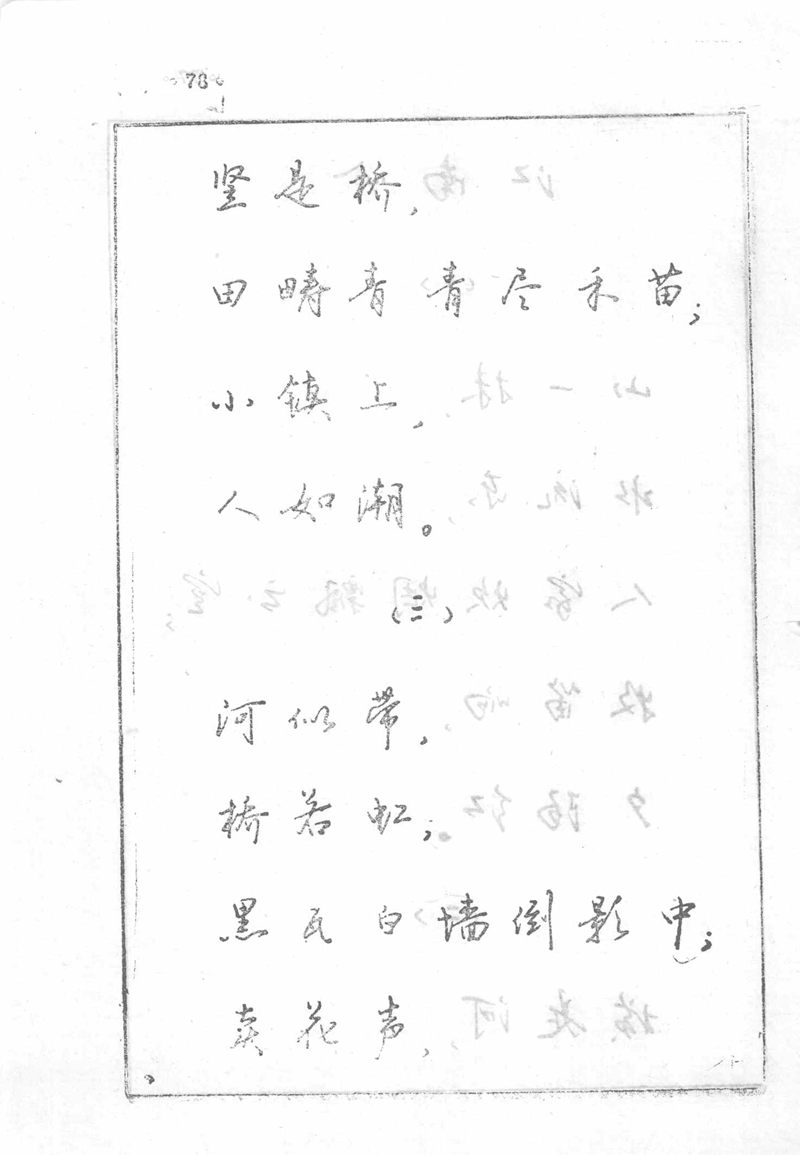 78
竖是桥,
田畴青青尽禾苗;
小镇上,
人如潮。
(三)
河似带,
桥若虹;
黑瓦白墙倒影中;
卖花声,